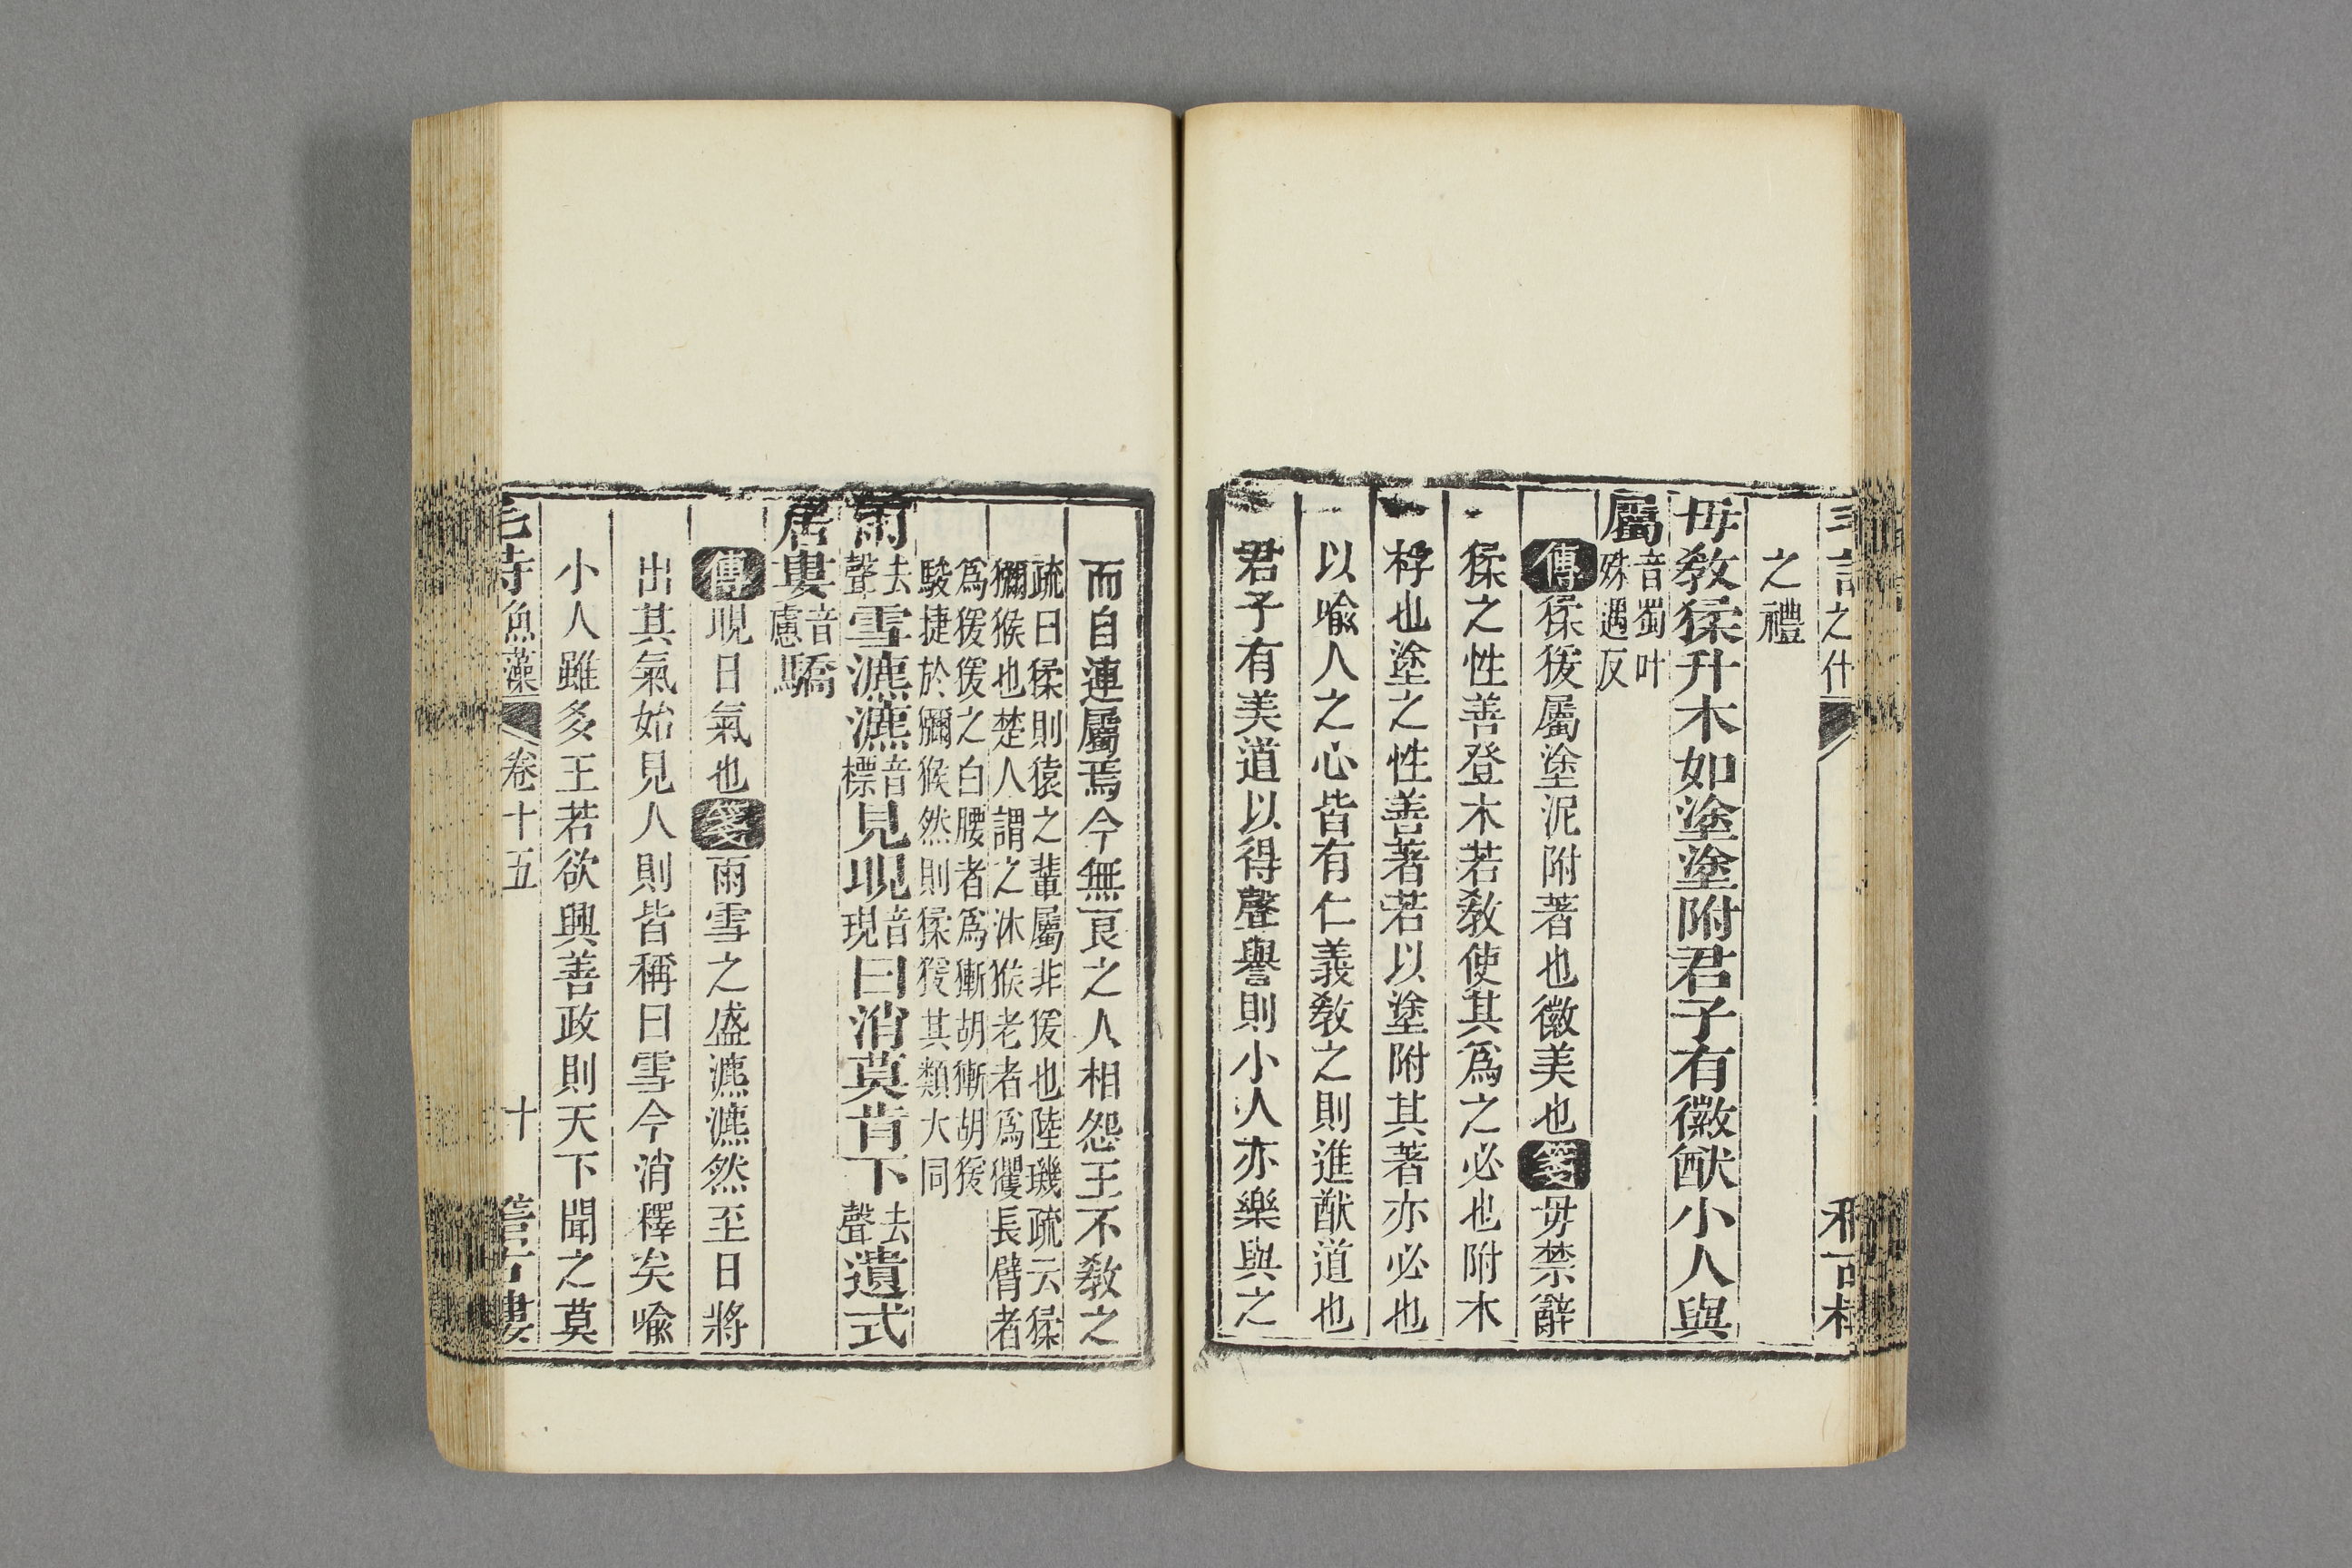 之禮
毋敎猱升木如塗塗附君子有徽猷小人與
屬音蜀叶殊遇反
傳猱猨屬塗泥附著也徽美也箋毋禁辭
猱之性善登木若敎使其爲之必也附木
桴也塗之性善著若以塗附其著亦必也
以喩人之心皆有仁義敎之則進猷道也
君子有美道以得聲譽則小人亦樂與之
而自連屬焉今無良之人相怨王不敎之
疏曰猱則猿之輩屬非猨也陸璣疏云猱
獼猴也楚人謂之沐猴老者爲玃長臂者
爲猨猨之白腰者爲獑胡獑胡猨
駿捷於獼猴然則猱猨其類大同
雨去聲雪瀌瀌音標見晛音現曰消莫肯下去聲遺式
居婁音慮驕
傳晛日氣也箋雨雪之盛瀌瀌然至日將
出其氣始見人則皆稱曰雪今消釋矣喩
小人雖多王若欲興善政則天下聞之莫
毛詩魚藻 卷十五 十